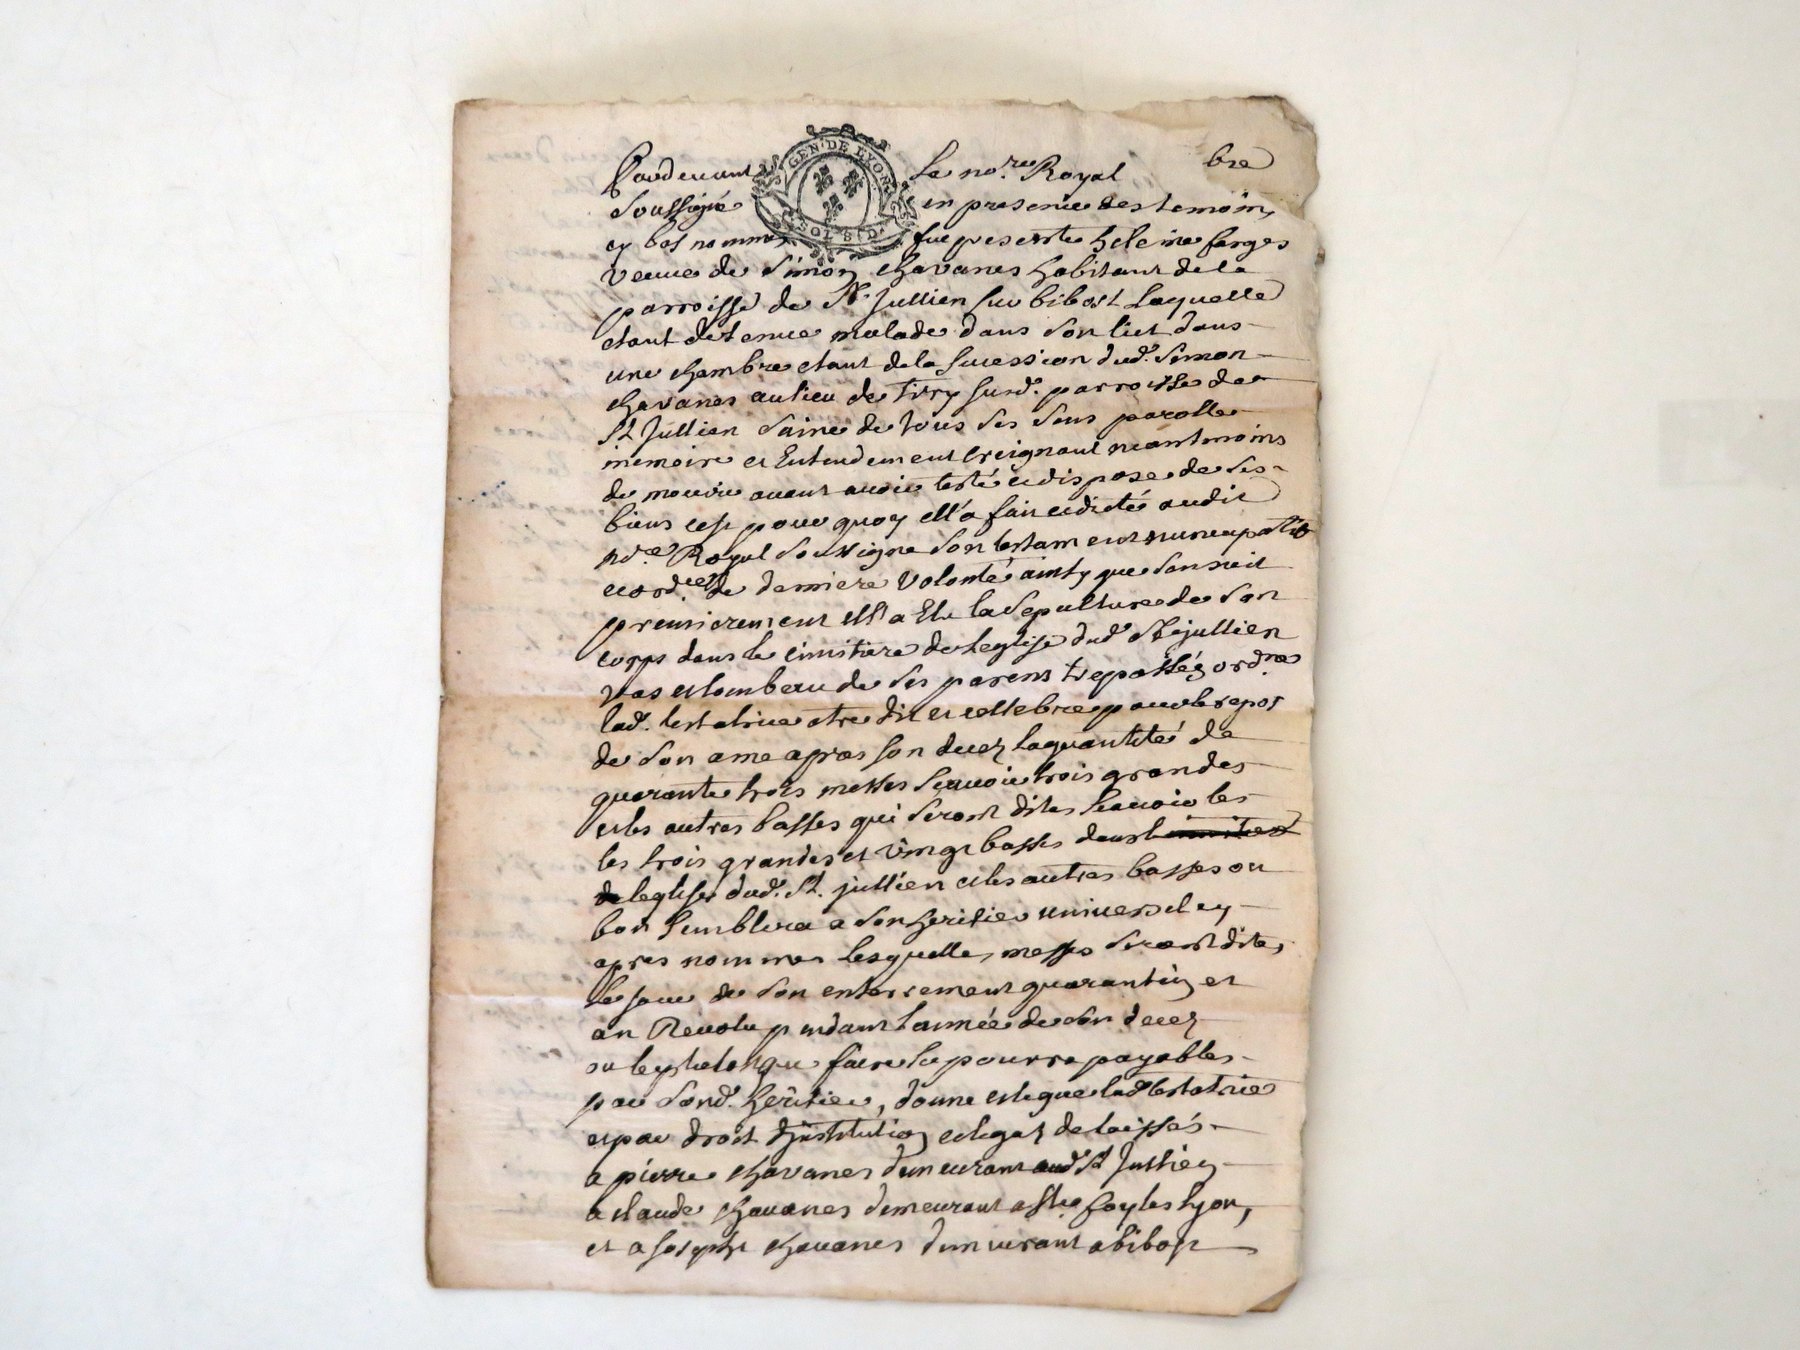 GEN. DE LYON
SOL. 8 D.
bre
Pardevant Le no.re Royal
Soussigné en presence des temoins
cy bas nommes fut presente heleine farges
veuve de Simon chavanes habitant de la
parroisse de St. Jullien sur bibost Laquelle
etant detenue malade dans son lict dans
une chambre etant de la sucession dud. Simon
chavanes au lieu de tiry susd. parroisse de
St Jullien saine de tous ses sens parolle
memoire et Entendement creignant neantmoins
de mourir avant avoir testé et dispose de ses
biens cest pour quoy ell'a fait et dicté audit
no.re Royal soussigne son testament nuncupatif
et ord.ce de derniere volonté ainsy que sensuit
premierement ell'a Elu la sepulture de son
corps dans le cimitiere de leglise dud. St jullien
vas et tombeau de ses parens trepassés ord.ne
lad. testatrice etre dit et cellebre pour le repos
de son ame apres son decez la quantité de
quarante trois messes scavoir trois grandes
et les autres basses qui seront dites scavoir les
les trois grandes et vingt basses dans
leglise dud. St. jullien et les autres basses ou
bon semblera a son heritier universel cy
apres nommes lesquelles messes seront dites
le jour de son enterrement quarantin et
an Revolu pendant lannée de son decez
ou le plutost que faire se pourra payables
par sond. heritier, donne et legue lad testatrice
et par droit dinstitution et legat delaissés
a pierre chavanes demeurant aud St Jullien
a claude chavanes demeurant a Ste foy les lyon,
et a Joseph chavanes demeurant a bibost